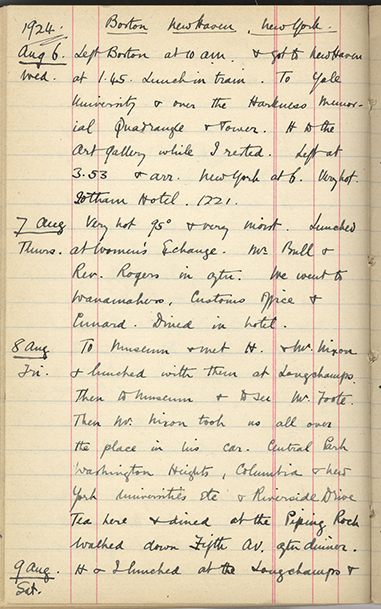 1924. Boston New Haven, New York.
Aug 6. Left Boston at 10 am. & got to New Haven
Wed. at 1.45. Lunch in train. To Yale
University & over the Harkness Memor-
ial Quadrangle & Tower. H to the
Art Gallery while I rested. Left at
3.53 & arr. New York at 6. Very hot.
Gotham Hotel. 1221.
7 Aug Very hot 95° & very moist. Lunched
Thurs. at Women's Exchange. Mr Bull &
Rev. Rogers in aftn. We went to
Wanamakers, Customs Office &
Cunard. Dined in hotel.
8 Aug To Museum & met H. & Mr. Nixon
Fri. & lunched with them at Longchamps.
Then to Museum & to see Mr. Foote.
Then Mr. Nixon took us all over
the place in his car. Central Park
Washington Heights, Columbia & New
York Universities etc & Riverside Drive
Tea here & dined at the Piping Rock
Walked down Fifth Av. after dinner.
9 Aug. H & I lunched at the Longchamps &
Sat.